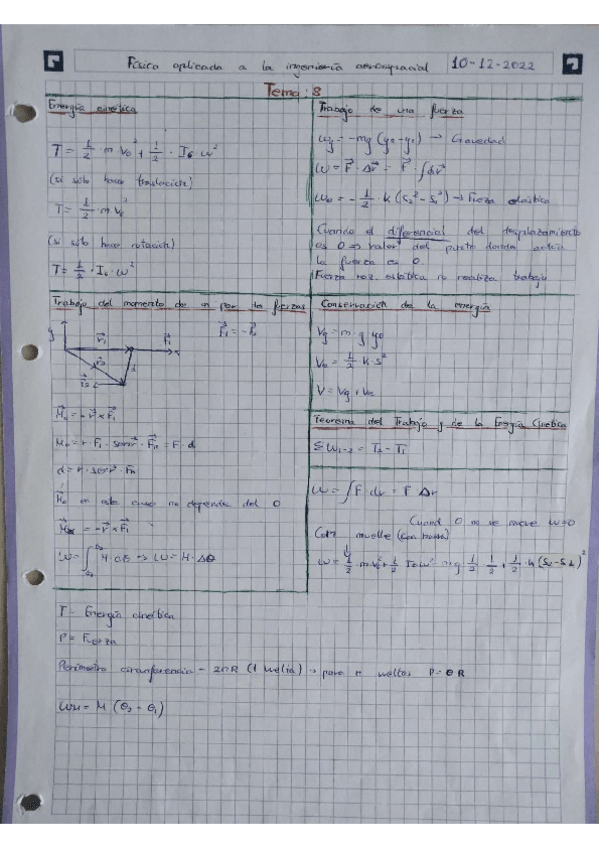 Física aplicada a la ingeniería aeroespacial 10-12-2022
Tema: 8
Energía cinética
T = 1/2 · m v₀² + 1/2 · I₆ ω²
(si solo hace traslación)
T = 1/2 · m v₆²
(si solo hace rotación)
T = 1/2 · I₀ · ω²
Trabajo de una fuerza
ωg = -mg (y₂ - y₁) → Gravedad
ω = F · Δr = F · ∫dr
ωe = - 1/2 · k (s₂² - s₁²) → Fuerza elástica
Cuando el diferencial del desplazamiento
es 0 ⇒ valor del punto donde actúa
la fuerza es 0.
Fuerza roz. estática no realiza trabajo
Trabajo del momento de un par de fuerzas
F₁ = -F₂
y
r₁
F₁
x
d
M₀ = -r × F₁
M₀ = r · F₁ · senr · Fn = F · d
d = r · senr · Fn
M₀ en este caso no depende del 0
= -r × F₁
ω = ∫ M dθ ⇒ ω = M · Δθ
Conservación de la energía
Vg = m · g · y₀
Ve = 1/2 k · s²
V = Vg + Ve
Teorema del Trabajo y de la Energía Cinética
Σω₁₋₂ = T₂ - T₁
ω = ∫F dr = F Δr
Cuando 0 no se mueve ω=0
Con muelle
T = Energía cinética
P = Fuerza
Perímetro circunferencia = 2πR (1 vuelta) → para n vueltas P = θR
ωM = M (θ₂ - θ₁)